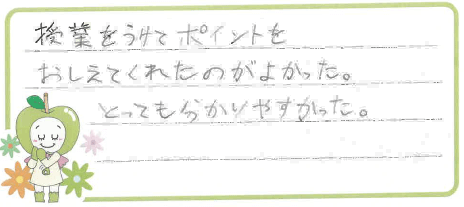 授業をうけてポイントを
おしえてくれたのがよかった。
とっても分かりやすかった。